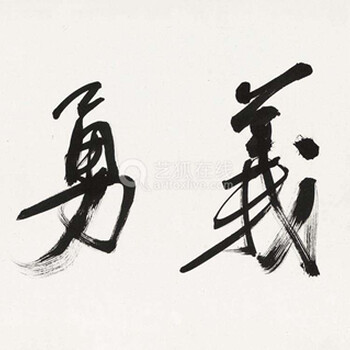 勇義
艺狐在线
artfoxlive.com